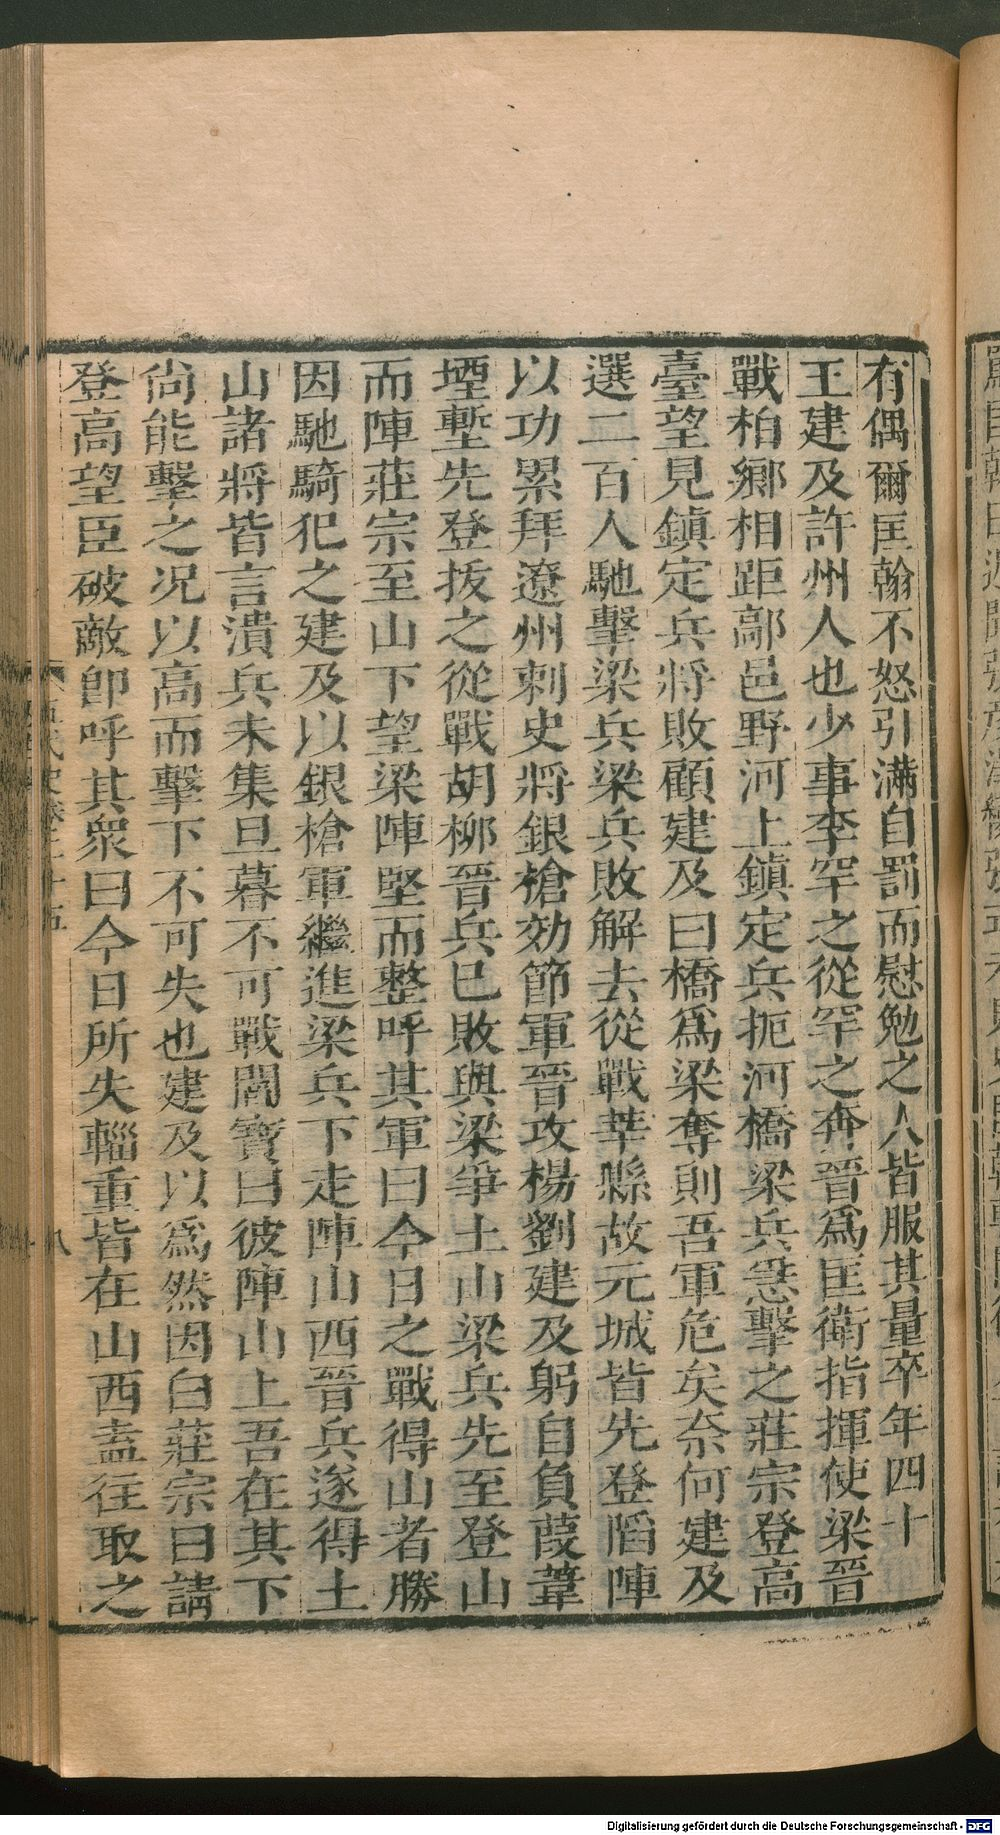 有偶爾匡翰不怒引滿自罰而慰勉之人皆服其量卒年四十
王建及許州人也少事李罕之從罕之奔晉爲匡衛指揮使梁晉
戰柏鄉相距鄗邑野河上鎮定兵扼河橋梁兵急擊之莊宗登高
臺望見鎮定兵將敗顧建及曰橋爲梁奪則吾軍危矣奈何建及
選二百人馳擊梁兵梁兵敗解去從戰莘縣故元城皆先登陷陣
以功累拜遼州刺史將銀槍効節軍晉攻楊劉建及躬自負葭葦
堙塹先登拔之從戰胡柳晉兵已敗與梁爭土山梁兵先至登山
而陣莊宗至山下望梁陣堅而整呼其軍曰今日之戰得山者勝
因馳騎犯之建及以銀槍軍繼進梁兵下走陣山西晉兵遂得土
山諸將皆言潰兵未集旦暮不可戰閻寶曰彼陣山上吾在其下
尚能擊之况以高而擊下不可失也建及以爲然因白莊宗曰請
登高望臣破敵卽呼其衆曰今日所失輜重皆在山西盍往取之
八
Digitalisierung gefördert durch die Deutsche Forschungsgemeinschaft - DFG